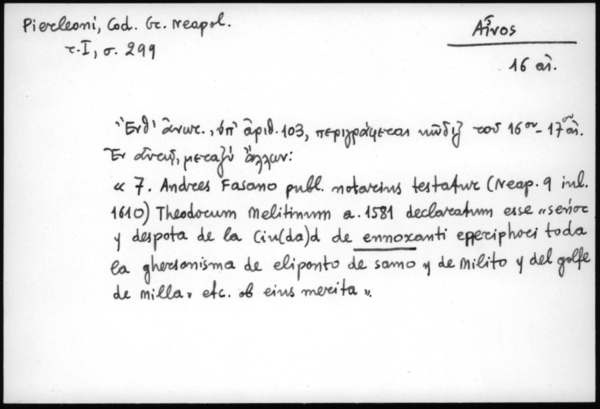 Pierleoni, Cod. Gr. Neapol.
τ. I, σ. 299
Αἶνος
16 αἰ.
Ἔνθ' ἀνωτ., ὑπ' ἀριθ. 103, περιγράφεται κώδιξ τοῦ 16ου - 17ου αἰ.
Ἐν αὐτῷ, μεταξὺ ἄλλων:
« 7. Andreas Fasano publ. notarius testatur (Neap. 9 iul.
1610) Theodorum Melitinum a. 1581 declaratum esse «señor
y despota de la Ciu(da)d de ennoxanti epperiphoci toda
la ghersonisma de eliponto de samo y de Milito y del golfe
de milla» etc. ob eius merita».